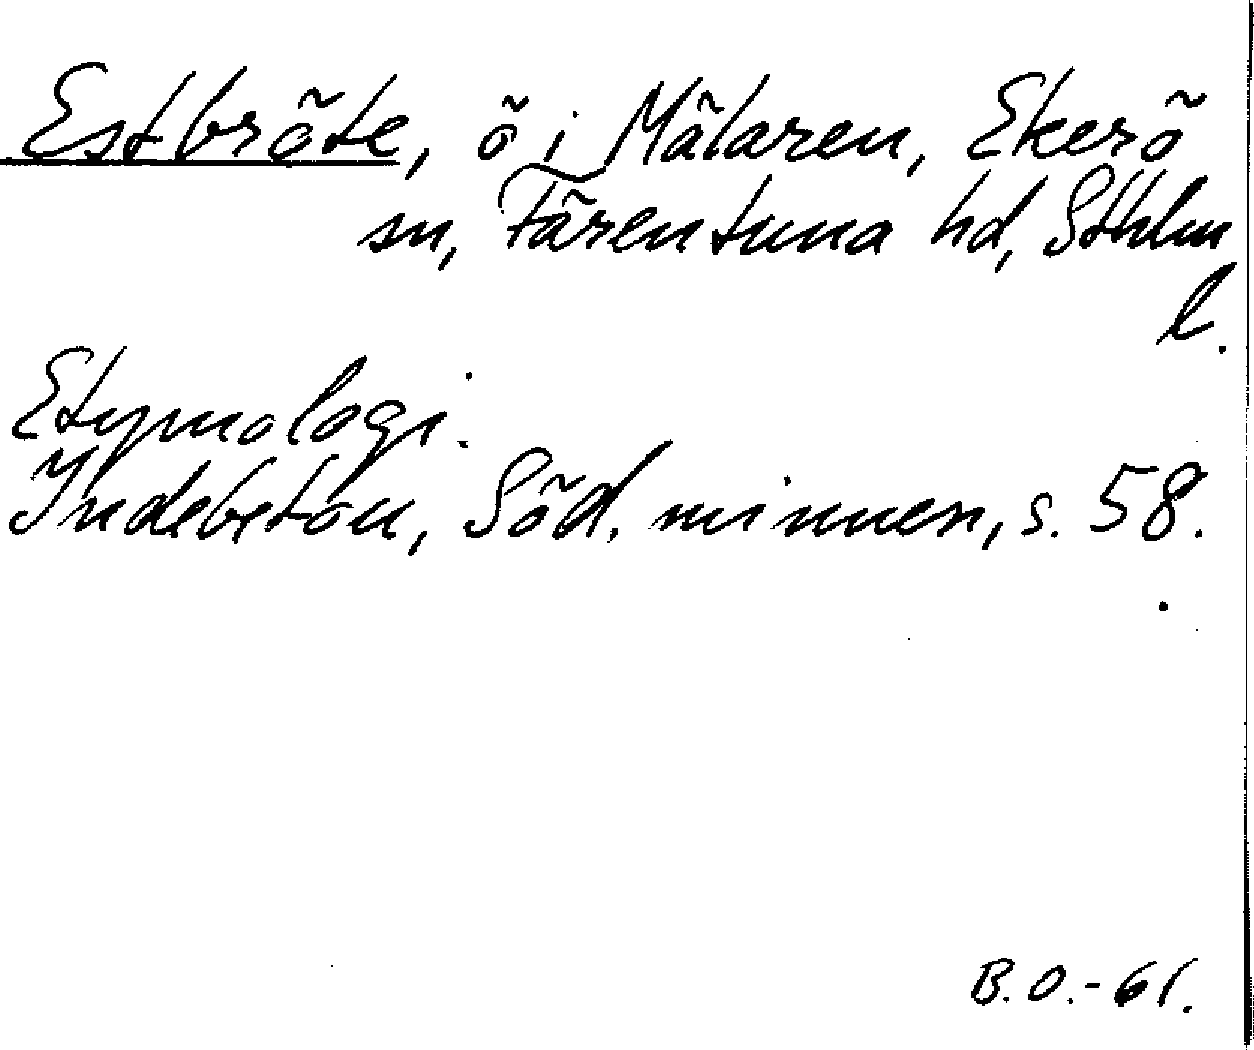 Estbröte, ö i Mälaren, Ekerö
sn, Färentuna hd, Sthlm
l.
Etymologi.
Indebetou, Söd. minnen, s. 58.
B.O.-61.